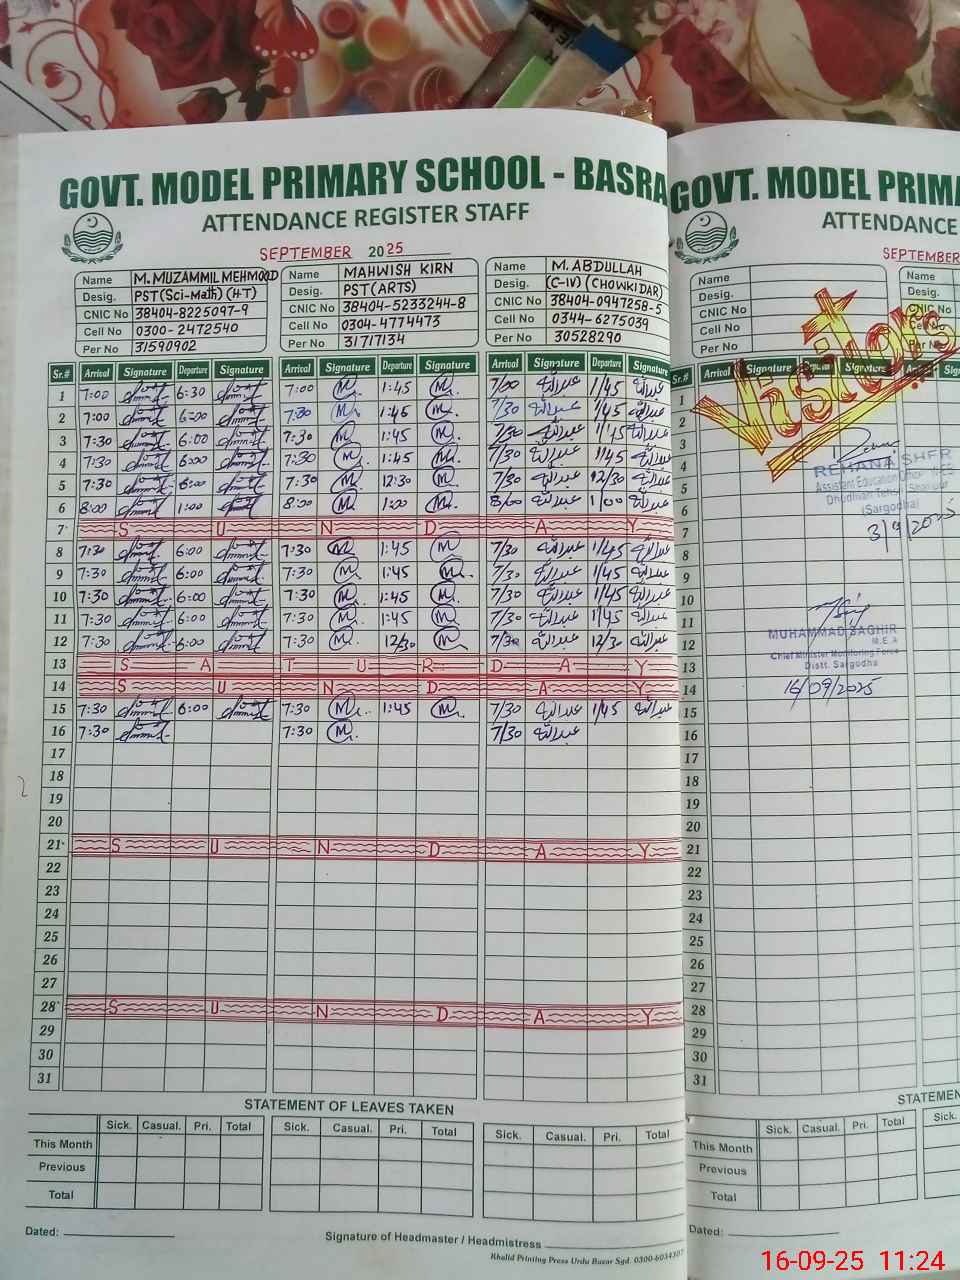 GOVT. MODEL PRIMARY SCHOOL - BASRA
ATTENDANCE REGISTER STAFF
SEPTEMBER 2025
Name M. MUZAMMIL MEHMOOD
Desig. PST(Sci-Math) (H-T)
CNIC No 38404-8225097-9
Cell No 0300-2472540
Per No 31590902
Name MAHWISH KIRN
Desig. PST(ARTS)
CNIC No 38404-5233244-8
Cell No 0304-4774473
Per No 31717134
Name M. ABDULLAH
Desig. (C-IV) (CHOWKIDAR)
CNIC No 38404-0947258-5
Cell No 0344-6275039
Per No 30528290
Sr.# Arrival Signature Departure Signature Arrival Signature Departure Signature Arrival Signature Departure Signature
1 7:00 6:30 7:00 M 1:45 M 7/00 عبداللہ 1/45 عبداللہ
2 7:00 6:00 7:30 M 1:45 M 7/30 عبداللہ 1/45 عبداللہ
3 7:30 6:00 7:30 M 1:45 M 7/30 عبداللہ 1/45 عبداللہ
4 7:30 6:00 7:30 M 1:45 M 7/30 عبداللہ 1/45 عبداللہ
5 7:30 6:00 7:30 M 12:30 M 7/30 عبداللہ 12/30 عبداللہ
6 8:00 1:00 8:00 M 1:00 M 8/00 عبداللہ 1/00 عبداللہ
7 SUNDAY
8 7:30 6:00 7:30 M 1:45 M 7/30 عبداللہ 1/45 عبداللہ
9 7:30 6:00 7:30 M 1:45 M 7/30 عبداللہ 1/45 عبداللہ
10 7:30 6:00 7:30 M 1:45 M 7/30 عبداللہ 1/45 عبداللہ
11 7:30 6:00 7:30 M 1:45 M 7/30 عبداللہ 1/45 عبداللہ
12 7:30 6:00 7:30 M 12/30 M 7/30 عبداللہ 12/30 عبداللہ
13 SATURDAY
14 SUNDAY
15 7:30 6:00 7:30 M 1:45 M 7/30 عبداللہ 1/45 عبداللہ
16 7:30 7:30 M 7/30 عبداللہ
17
18
19
20
21 SUNDAY
22
23
24
25
26
27
28 SUNDAY
29
30
31
STATEMENT OF LEAVES TAKEN
Sick. Casual. Pri. Total Sick. Casual. Pri. Total Sick. Casual. Pri. Total
This Month
Previous
Total
Dated:
Signature of Headmaster / Headmistress
Khalid Printing Press Urdu Bazar Sgd. 0300-6034307
GOVT. MODEL PRIMA
ATTENDANCE
SEPTEMBER
Name
Desig.
CNIC No
Cell No
Per No
Name
CNIC No
Sr.# Arrival Signature Signature
Visitors
1
2
3
4
5
6
7
8
9
10
11
12
13
14
15
16
17
18
19
20
21
22
23
24
25
26
27
28
29
30
31
REHANA
Assistant Education Officer
(Sargodha)
3/9/2025
MUHAMMAD SAGHIR
M.E.A
Chief Minister Monitoring Force
Distt. Sargodha
16/09/2025
STATEMEN
Sick. Casual. Pri. Total Sick.
This Month
Previous
Total
Dated:
16-09-25 11:24